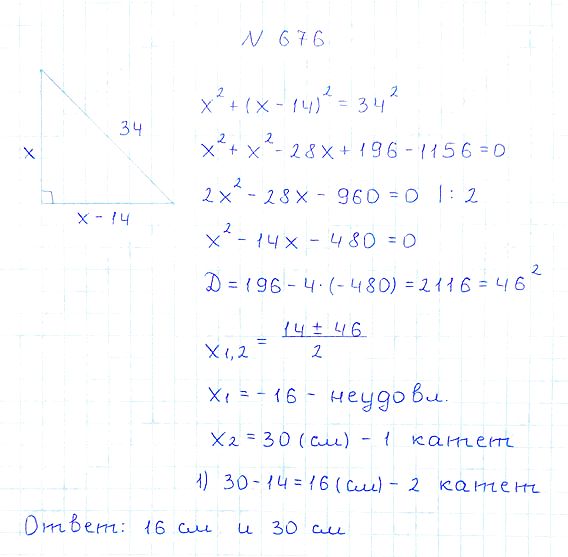 N 676
x² + (x - 14)² = 34²
34
x² + x² - 28x + 196 - 1156 = 0
x
2x² - 28x - 960 = 0 |: 2
x - 14
x² - 14x - 480 = 0
D = 196 - 4·(-480) = 2116 = 46²
x1,2 = (14 ± 46)/2
x1 = -16 - неудовл.
x2 = 30 (см) - 1 катет
1) 30 - 14 = 16 (см) - 2 катет
Ответ: 16 см и 30 см